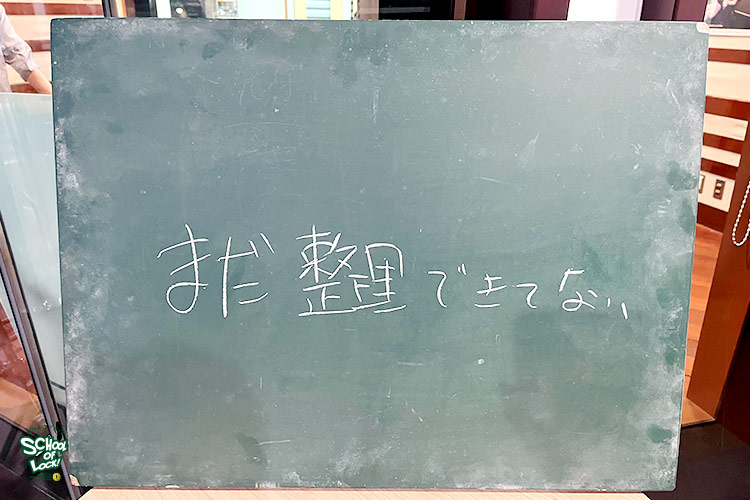 まだ整理できてない
SCHOOL
OF
LOCK!